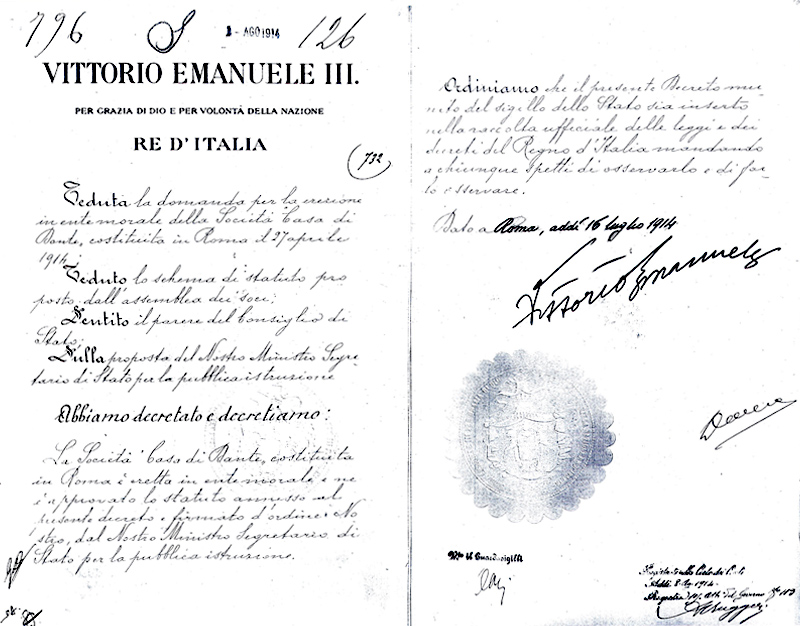 796 S 2 - AGO 1914 126
VITTORIO EMANUELE III.
PER GRAZIA DI DIO E PER VOLONTÀ DELLA NAZIONE
RE D'ITALIA
732
Veduta la domanda per la erezione
in ente morale della Società Casa di
Dante, costituita in Roma il 27 aprile
1914;
Veduto lo schema di statuto pro
posto dall'assemblea dei soci;
Sentito il parere del Consiglio di
Stato;
Sulla proposta del Nostro Ministro Segre-
tario di Stato per la pubblica istruzione
Abbiamo decretato e decretiamo:
La Società Casa di Dante, costituita
in Roma è eretta in ente morale e ne
è approvato lo statuto annesso al
presente decreto e firmato d'ordine No
stro, dal Nostro Ministro Segretario di
Stato per la pubblica istruzione.
Ordiniamo che il presente Decreto mu-
nito del sigillo dello Stato sia inserto
nella raccolta ufficiale delle leggi e dei
decreti del Regno d'Italia mandando
a chiunque spetti di osservarlo e di far-
lo osservare.
Dato a Roma, addì 16 luglio 1914
Vittorio Emanuele
Visto Il Guardasigilli
Registrato alla Corte dei Conti
Addì 8 Ag. 1914
Registro Atti del Governo